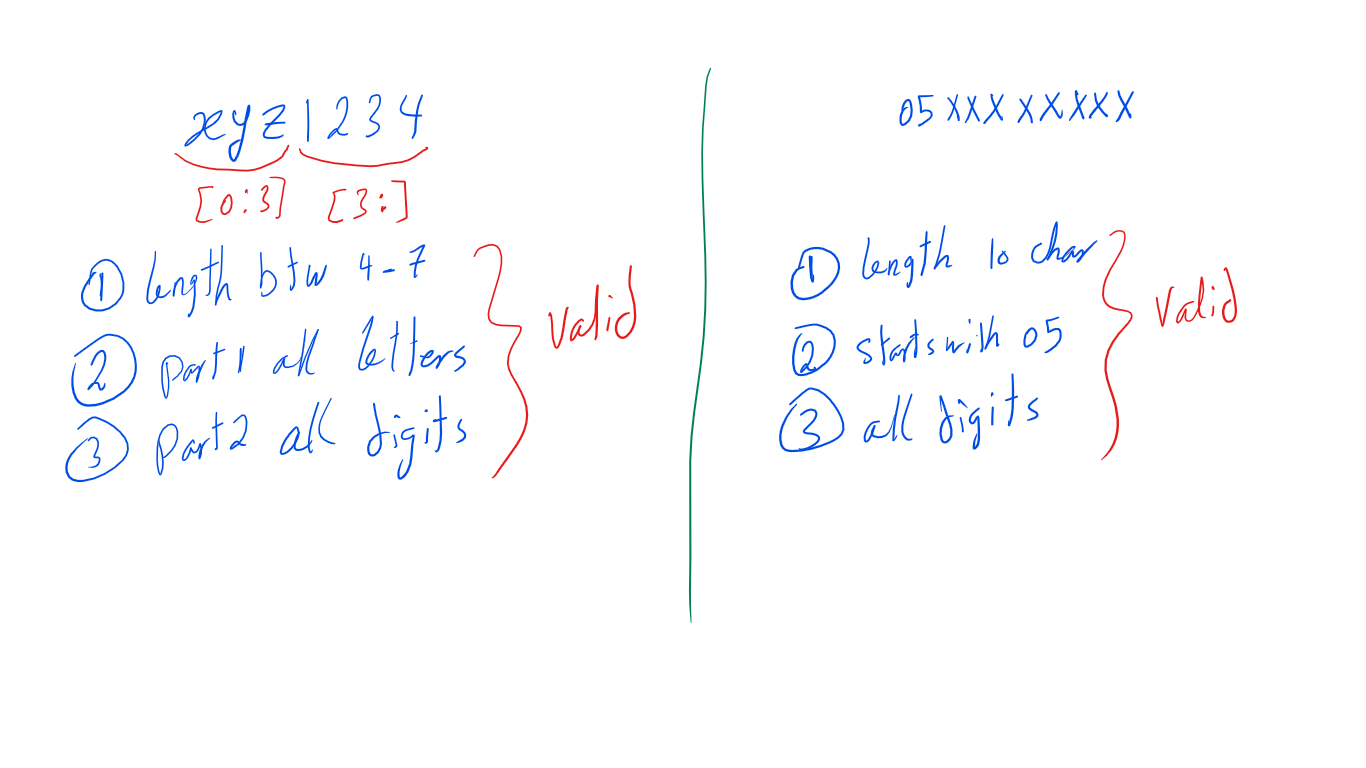 xyz1234
[0:3] [3:]
① length btw 4-7
② part1 all letters
③ part2 all digits
valid
05XXXXXXXX
① length 10 char
② starts with 05
③ all digits
valid